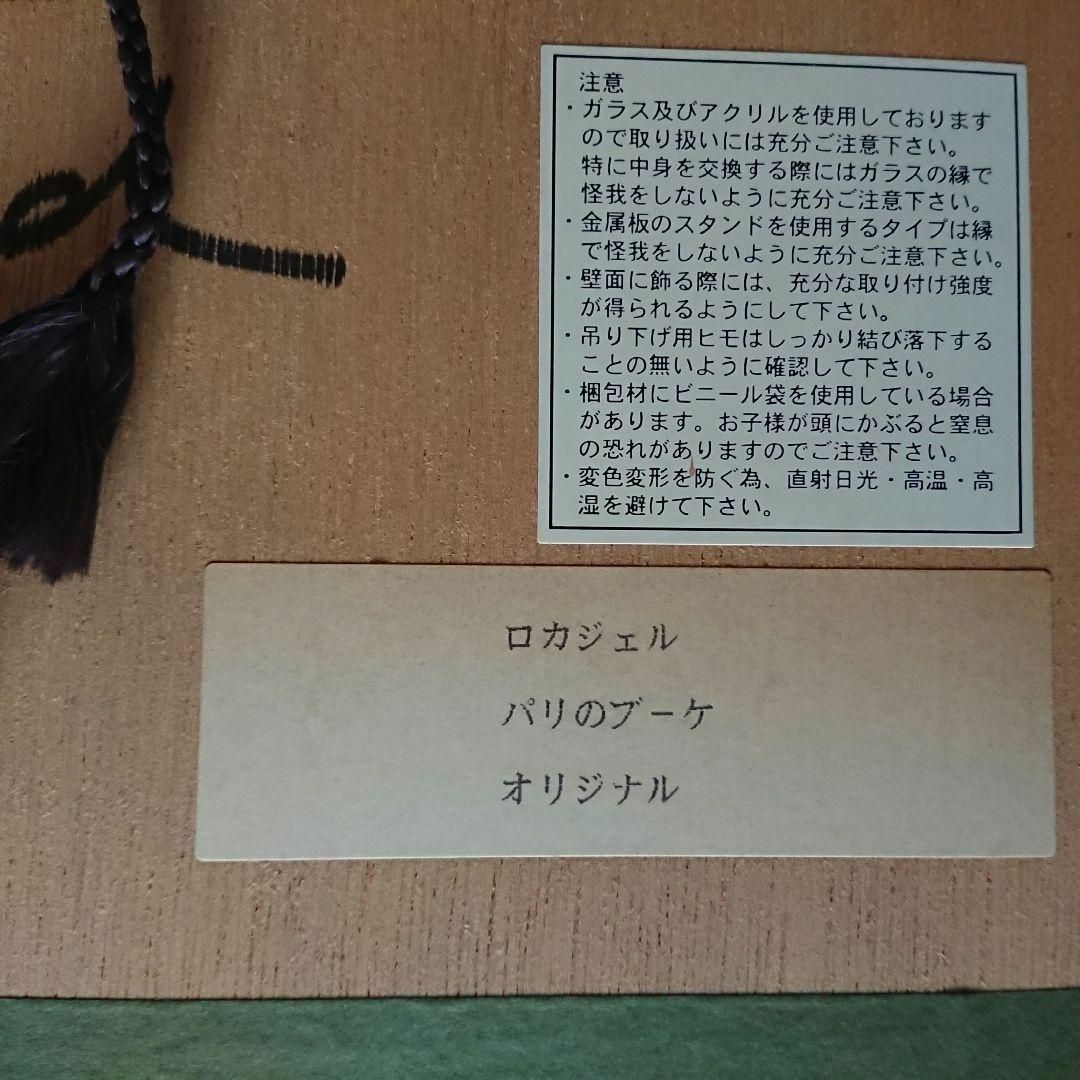 注意
・ガラス及びアクリルを使用しております
ので取り扱いには充分ご注意下さい。
特に中身を交換する際にはガラスの縁で
怪我をしないように充分ご注意下さい。
・金属板のスタンドを使用するタイプは縁
で怪我をしないように充分ご注意下さい。
・壁面に飾る際には、充分な取り付け強度
が得られるようにして下さい。
・吊り下げ用ヒモはしっかり結び落下する
ことの無いように確認して下さい。
・梱包材にビニール袋を使用している場合
があります。お子様が頭にかぶると窒息
の恐れがありますのでご注意下さい。
・変色変形を防ぐ為、直射日光・高温・高
湿を避けて下さい。
ロカジェル
パリのブーケ
オリジナル